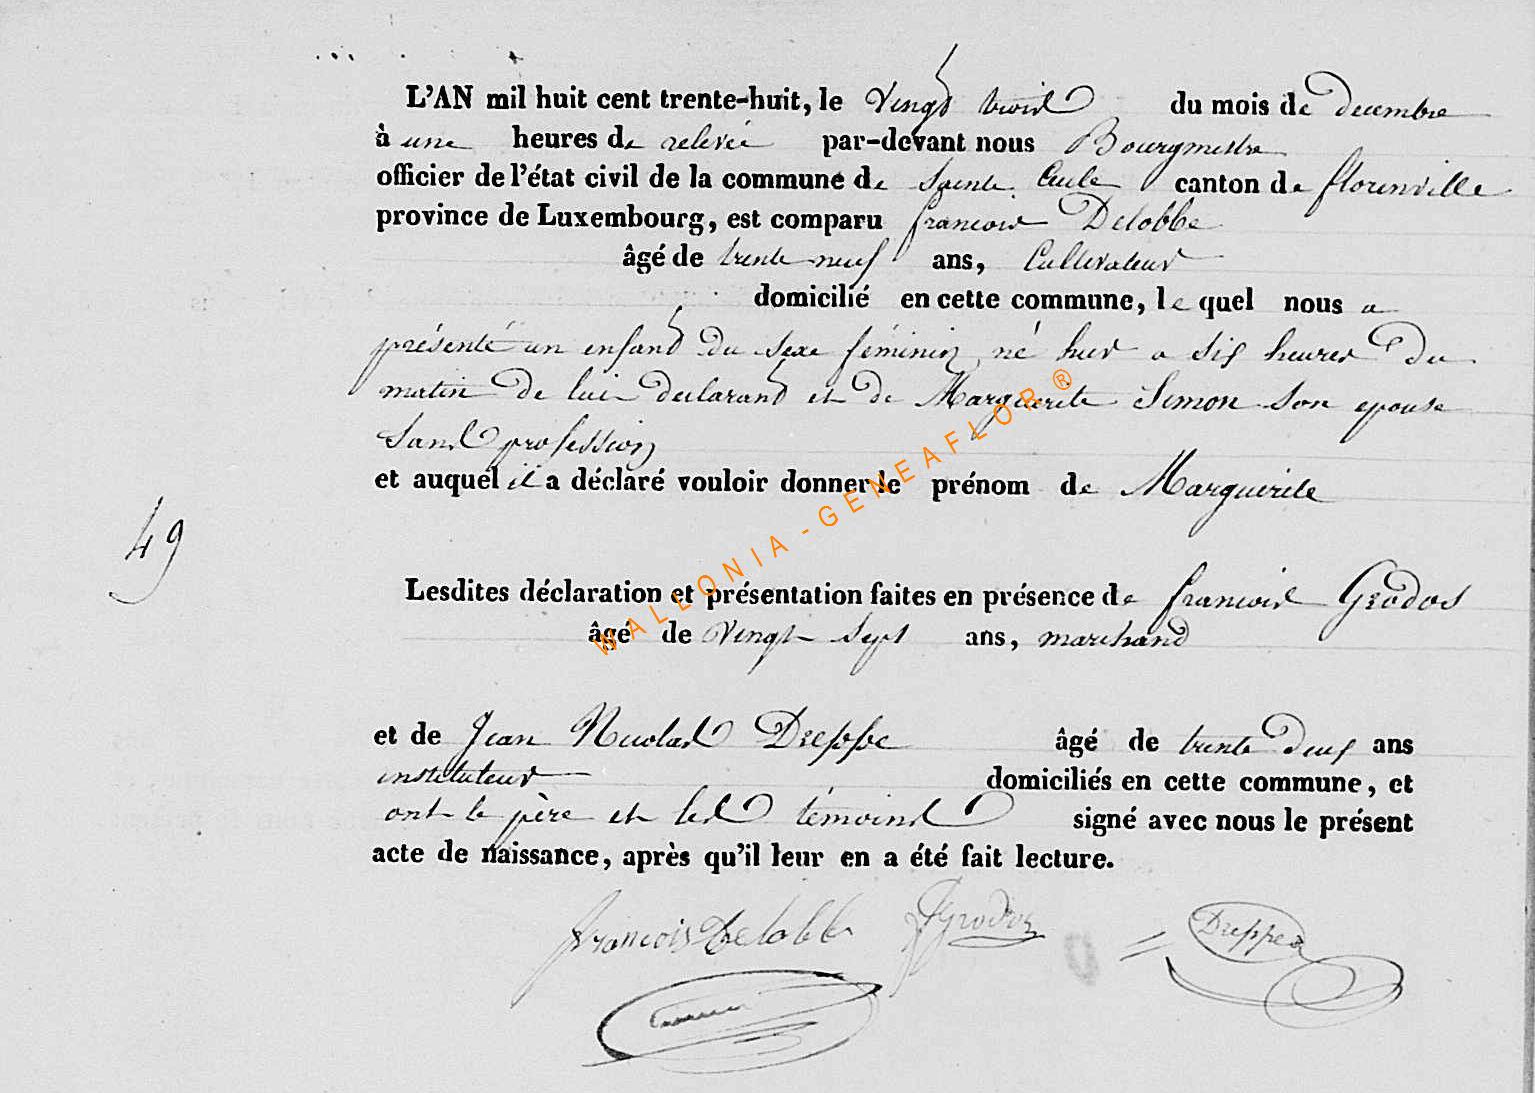 L'AN mil huit cent trente-huit, le Vingt trois du mois de decembre
à une heures de relevée par-devant nous Bourgmestre
officier de l'état civil de la commune de Sainte Cecile canton de florenville
province de Luxembourg, est comparu francois Delobbe
âgé de trente neuf ans, Cultivateur
domicilié en cette commune, le quel nous a
présenté un enfant du sexe féminin né hier a six heures du
matin de lui declarant et de Marguerite Simon son epouse
sans profession
et auquel il a déclaré vouloir donner le prénom de Marguerite
49
Lesdites déclaration et présentation faites en présence de francois Grodos
âgé de vingt sept ans, marchand
et de Jean Nicolas Dreppe âgé de trente deux ans
instituteur domiciliés en cette commune, et
ont le père et les témoins signé avec nous le présent
acte de naissance, après qu'il leur en a été fait lecture.
francois Delobbe f Grodos Dreppe
WALLONIA - GENEAFLOR ®